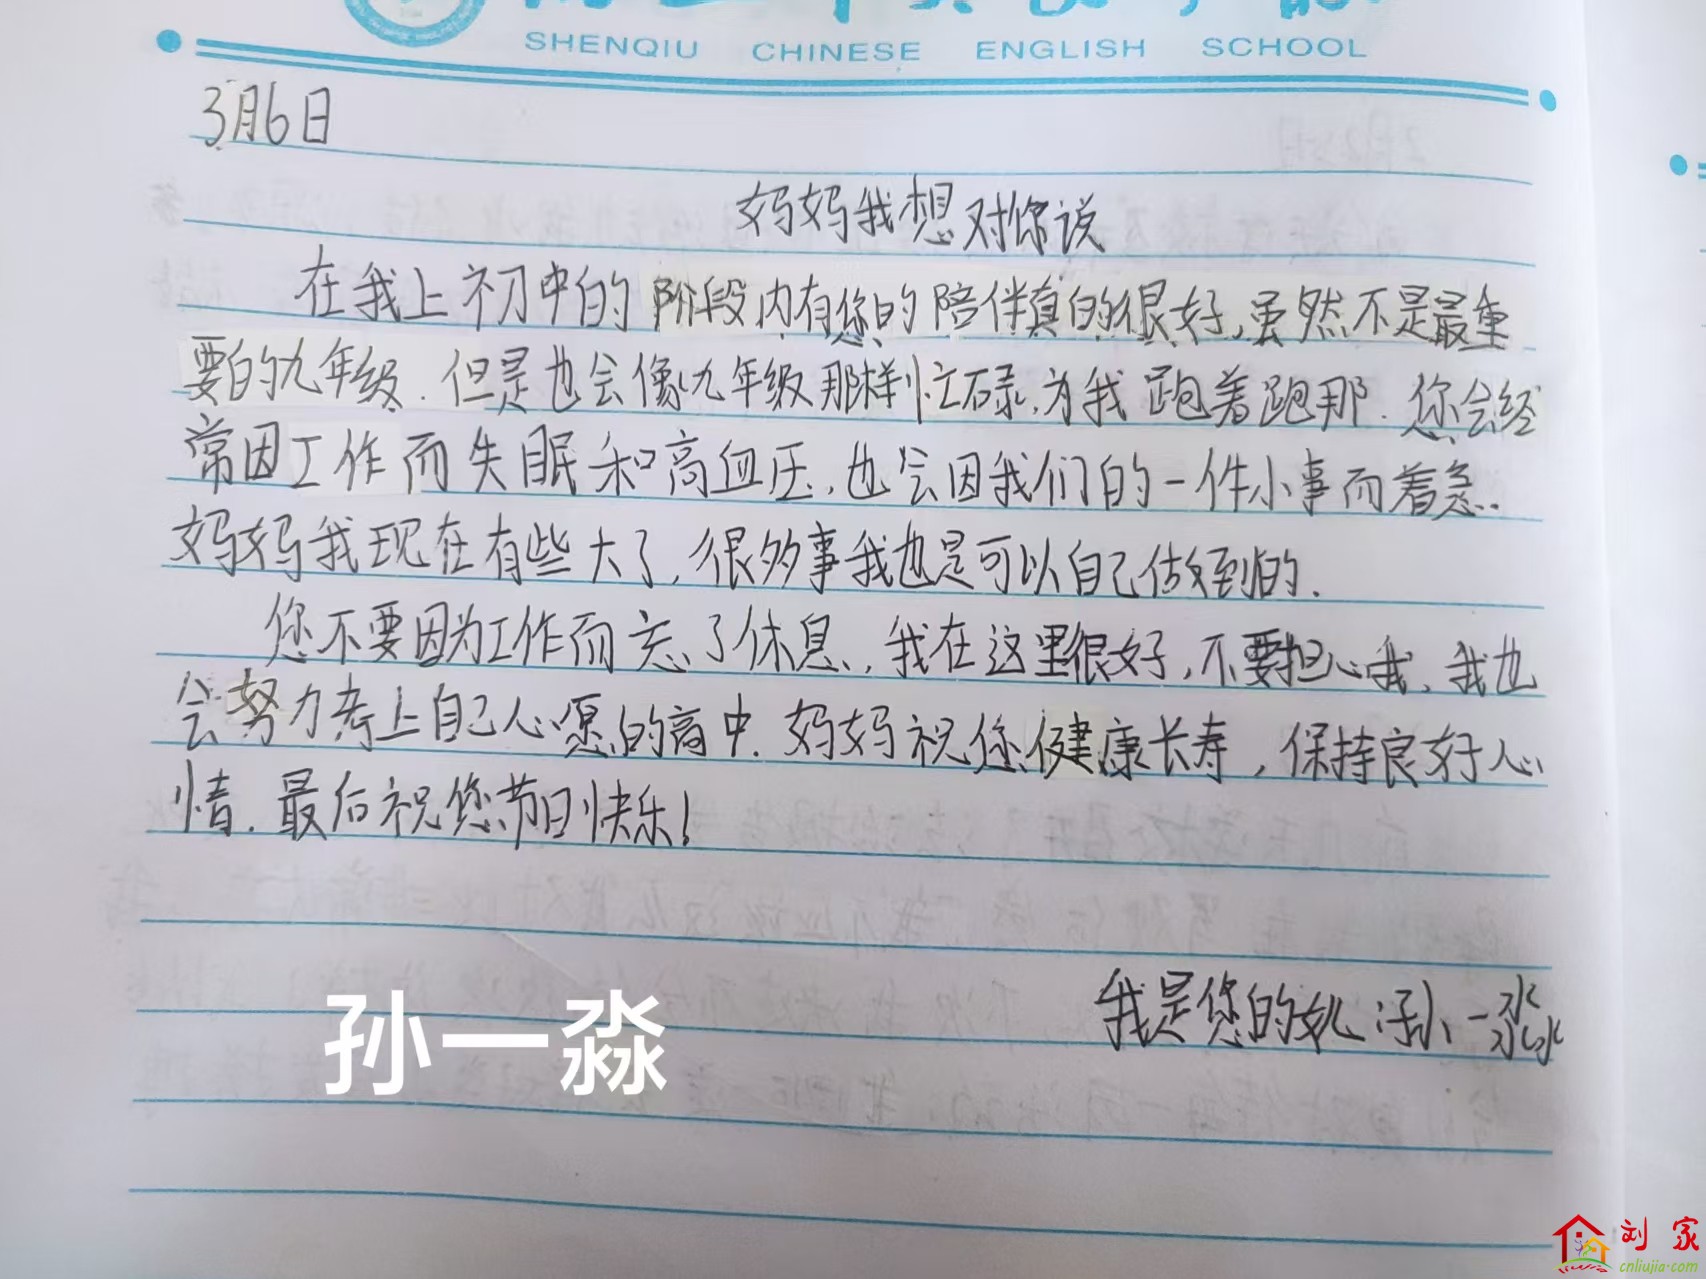 SHENQIU CHINESE ENGLISH SCHOOL
3月6日
妈妈我想对你说
在我上初中的阶段内有您的陪伴真的很好,虽然不是最重
要的九年级.但是也会像九年级那样忙碌,为我跑着跑那.您会经
常因工作而失眠和高血压,也会因我们的一件小事而着急..
妈妈我现在有些大了,很多事我也是可以自己做到的.
您不要因为工作而忘了休息,我在这里很好,不要担心我,我也
会努力考上自己心愿的高中.妈妈祝您健康长寿,保持良好心
情.最后祝您节日快乐!
我是您的女儿:孙一淼
孙一淼
刘家
cnliujia.com